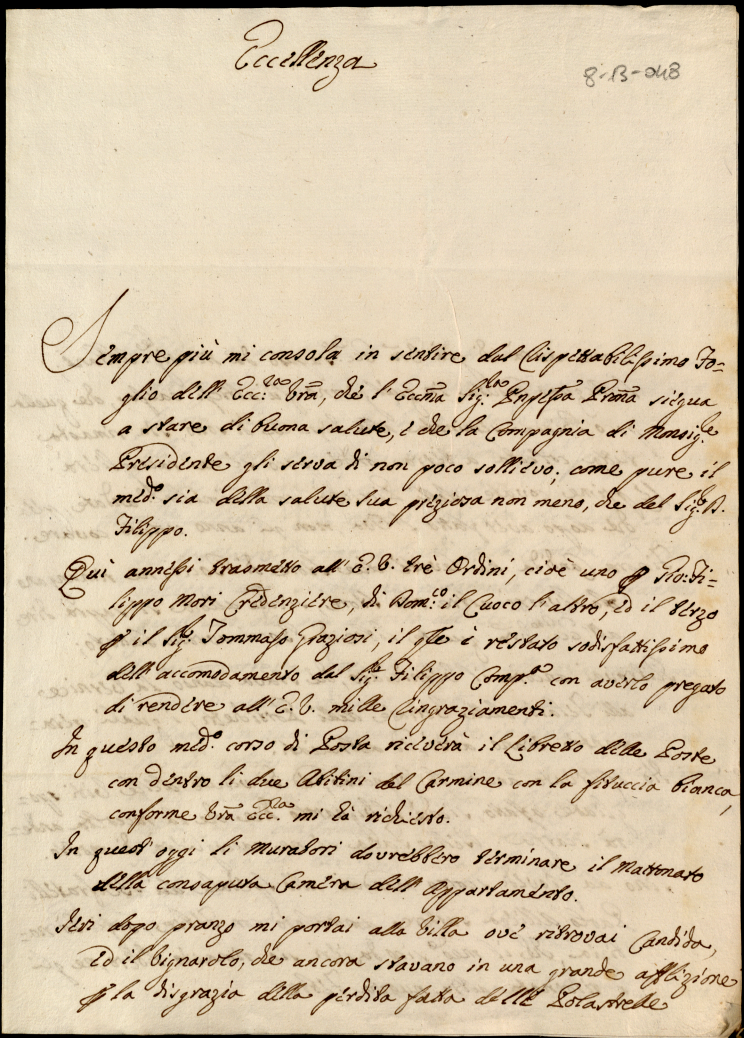 Eccellenza
8-B-048
Sempre più mi consola in sentire dal Rispettabilissimo Fo-
glio dell' Ecc:za Vrã, che l' Eccma Sig:ra Pnpessa Prma siegua
a stare di buona salute, e che la Compagnia di Monsig.e
Presidente gli serva di non poco sollievo; come pure il
med.o sia della salute sua preziosa non meno, che del Sig.r D.
Filippo.
Qui annessi trasmetto all' E. V. trè Ordini, cioè uno p Gio: Fi-
lippo Mori Credenziere, di Dom:co il Cuoco l'altro, ed il terzo
p il Sig.r Tommaso Graziosi, il qle è restato sodisfattissimo
dell' accomodamento dal Sig.r Filippo Comp.o con averlo pregato
di rendere all' E. V. mille ringraziamenti.
In questo med.o corso di Posta riceverà il Libretto delle Poste
con dentro li due Abitini del Carmine con la fituccia bianca,
conforme Vrã Ecc:za mi hà richiesto.
In quest' oggi li Muratori dovrebbero terminare il Mattonato
della consaputa Camera dell' Appartamento.
Ieri dopo pranzo mi portai alla Villa ove ritrovai Candida,
ed il Vignarolo, che ancora stavano in una grande afflizione
p la disgrazia della perdita fatta delle Polastrelle